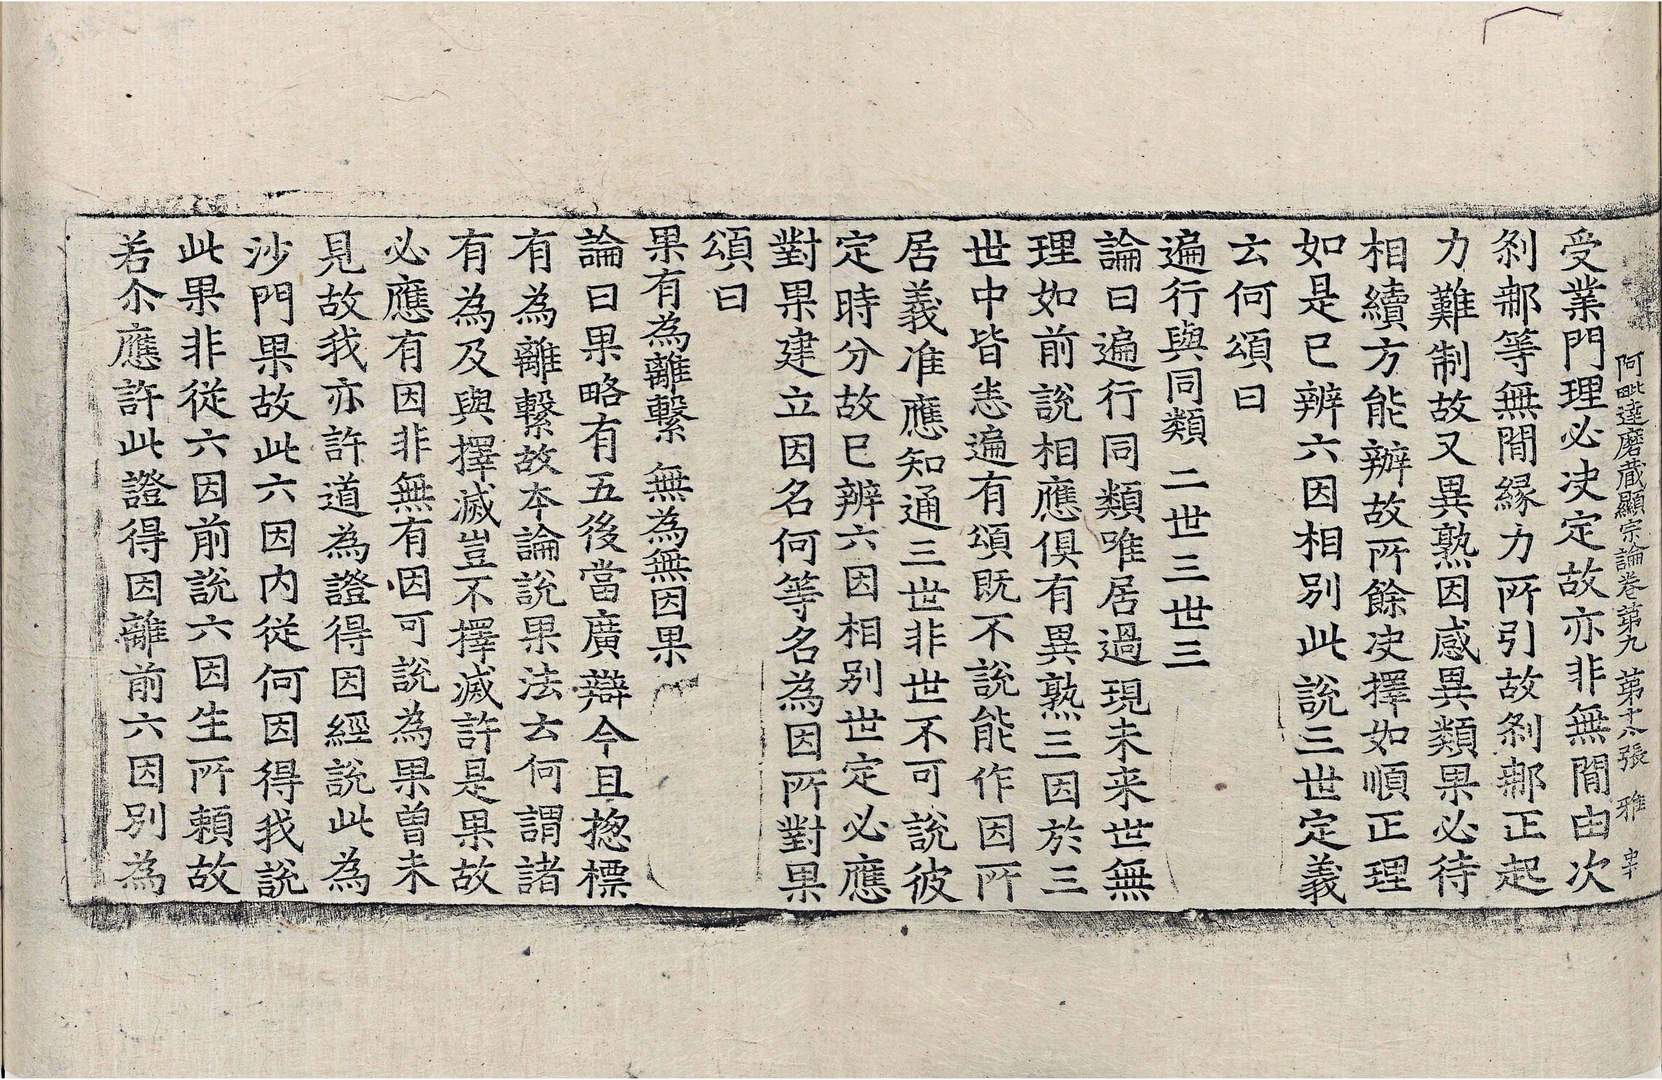 阿毗達磨藏顯宗論卷第九 第十六張 雅
受業門理必決定故亦非無閒由次
刹那等無閒緣力所引故刹那正起
力難制故又異熟因感異類果必待
相續方能辦故所餘決擇如順正理
如是已辨六因相別此說三世定義
云何頌曰
遍行與同類 二世三世三
論曰遍行同類唯居過現未来世無
理如前說相應俱有異熟三因於三
世中皆悉遍有頌既不說能作因所
居義准應知通三世非世不可說彼
定時分故已辨六因相別世定必應
對果建立因名何等名為因所對果
頌曰
果有為離繫 無為無因果
論曰果略有五後當廣辯今且揔標
有為離繫故本論說果法云何謂諸
有為及與擇滅豈不擇滅許是果故
必應有因非無有因可說為果曾未
見故我亦許道為證得因經說此為
沙門果故此六因內從何因得我說
此果非從六因前說六因生所賴故
若尒應許此證得因離前六因別為